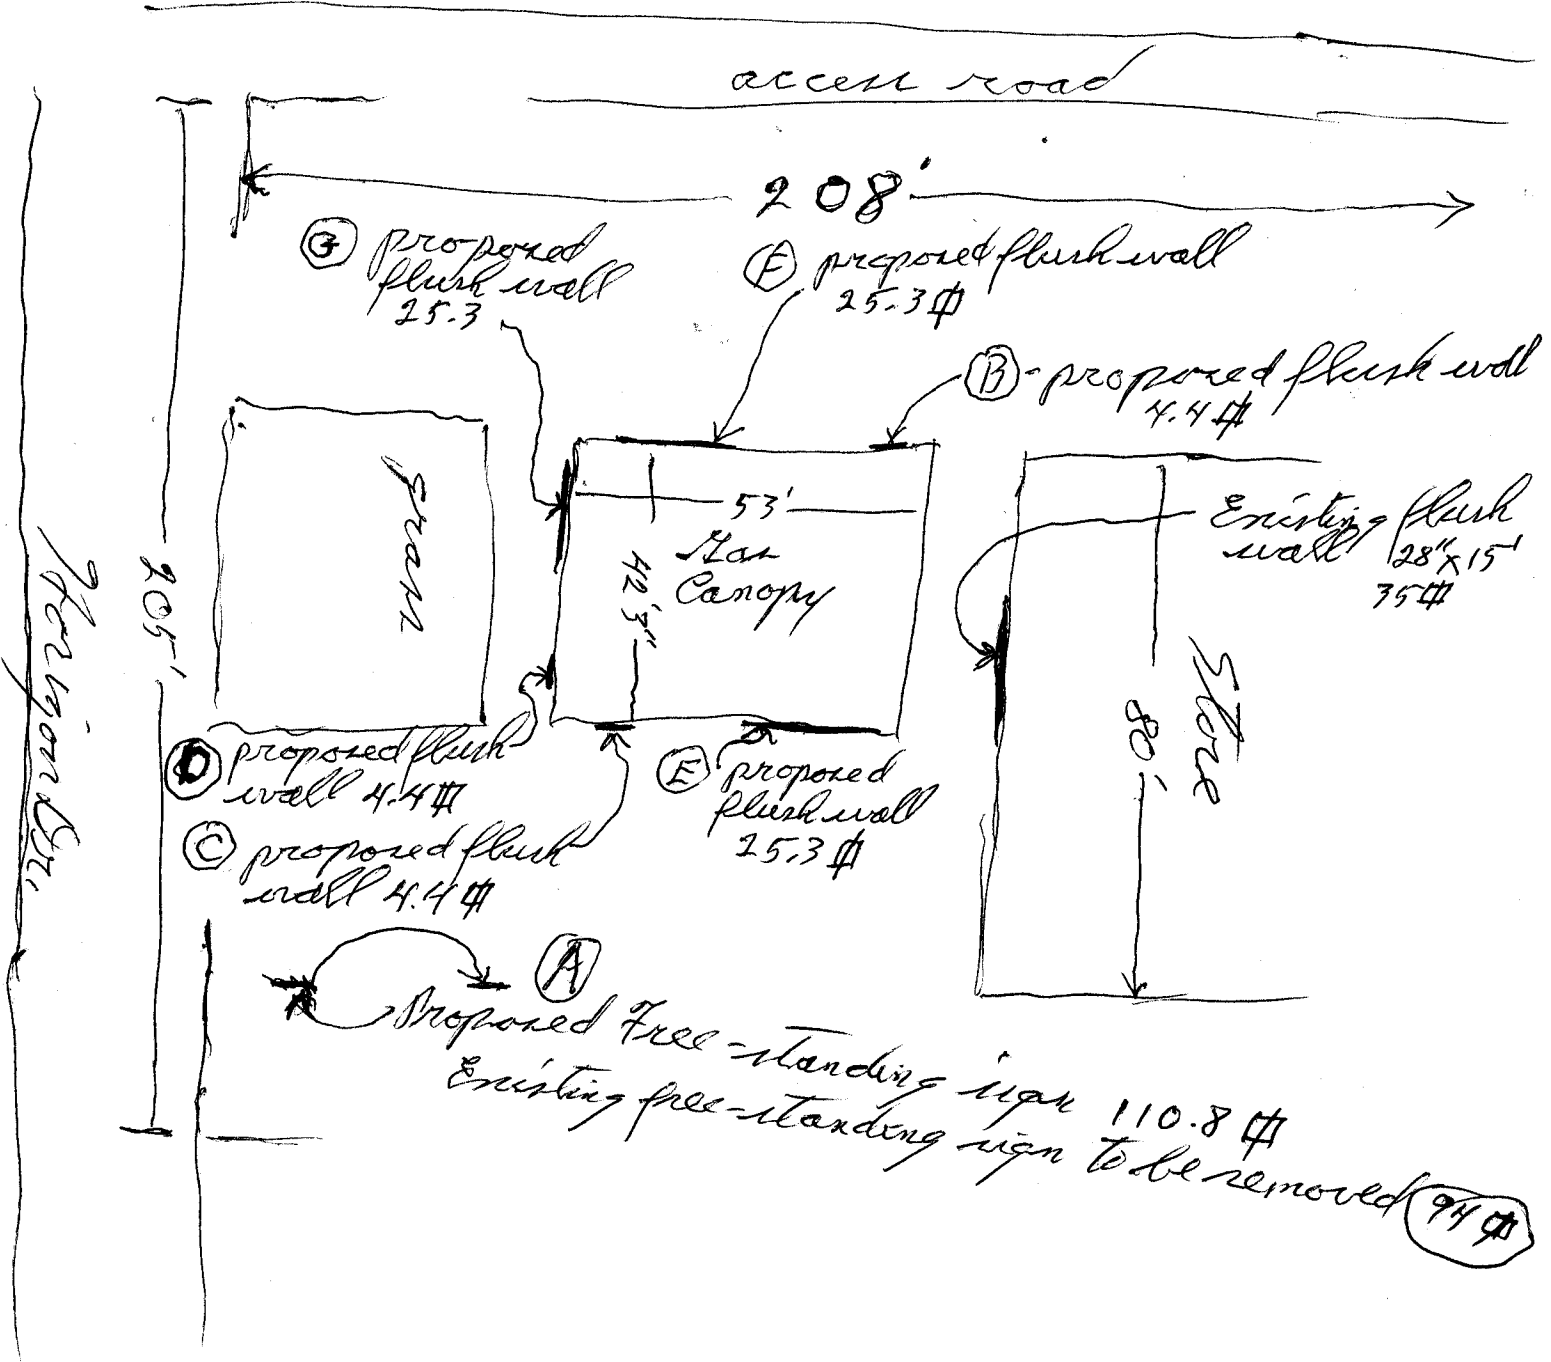 access road
208'
G proposed
flush wall
25.3
F proposed flush wall
25.3 ⏍
B - proposed flush wall
4.4 ⏍
53'
Gas
Canopy
42'3"
grass
Existing flush
wall 28" x 15'
35 ⏍
Store
80'
205'
Horizon Dr.
D proposed flush
wall 4.4 ⏍
C proposed flush
wall 4.4 ⏍
E proposed
flush wall
25.3 ⏍
A
Proposed Free-standing sign 110.8 ⏍
Existing free-standing sign to be removed 94 ⏍